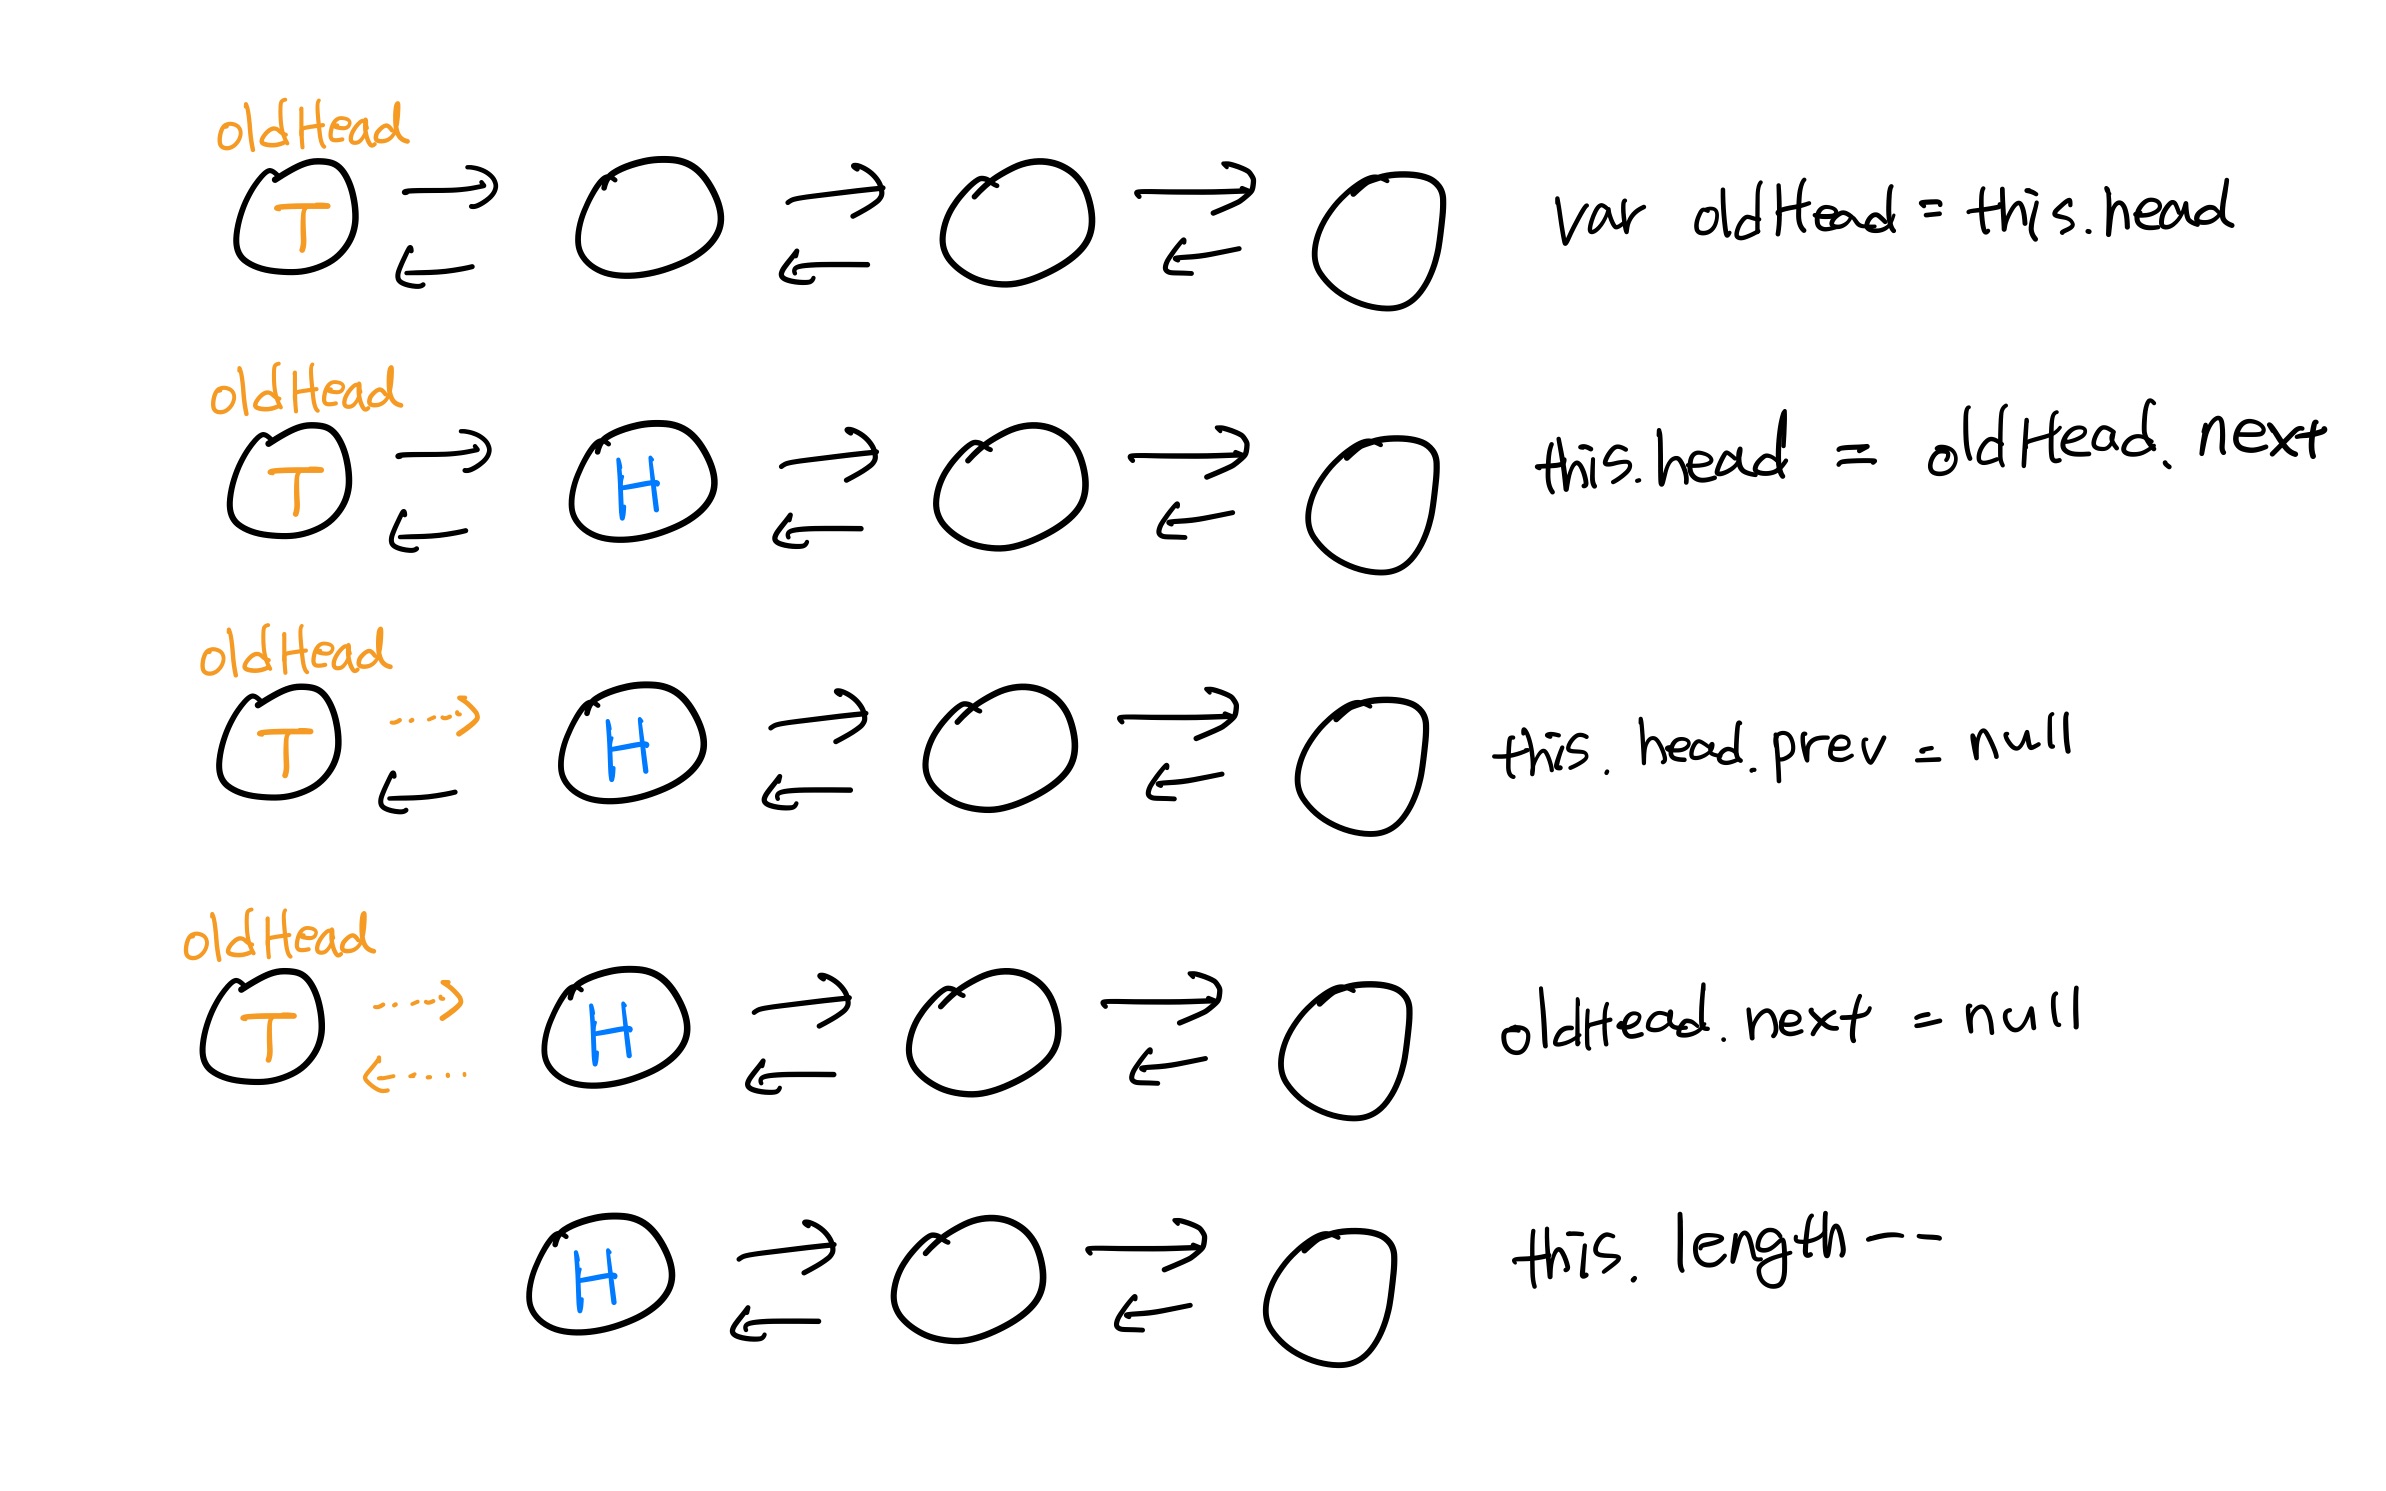 oldHead
T
var oldHead = this.head
oldHead
T
H
this.head = oldHead.next
oldHead
T
H
this.head.prev = null
oldHead
T
H
oldHead.next = null
H
this.length --